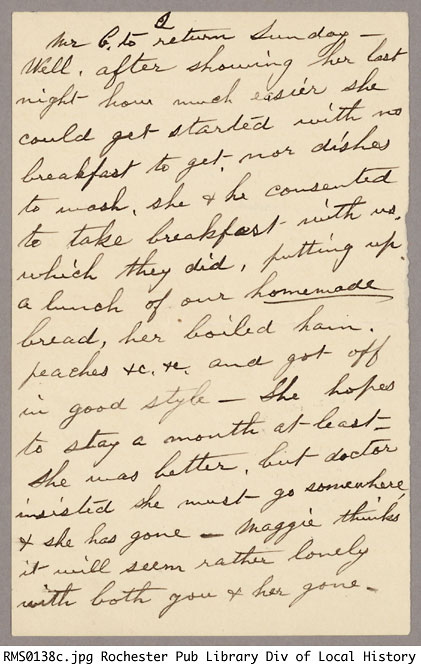 2
Mr C. to return Sunday —
Well, after showing her last
night how much easier she
could get started with no
breakfast to get, nor dishes
to wash, she & he consented
to take breakfast with us,
which they did, putting up
a lunch of our homemade
bread, her boiled ham,
peaches &c. &c. and got off
in good style — She hopes
to stay a month at least —
She was better, but doctor
insisted she must go somewhere,
& she has gone — Maggie thinks
it will seem rather lonely
with both you & her gone —
RMS0138c.jpg Rochester Pub Library Div of Local History